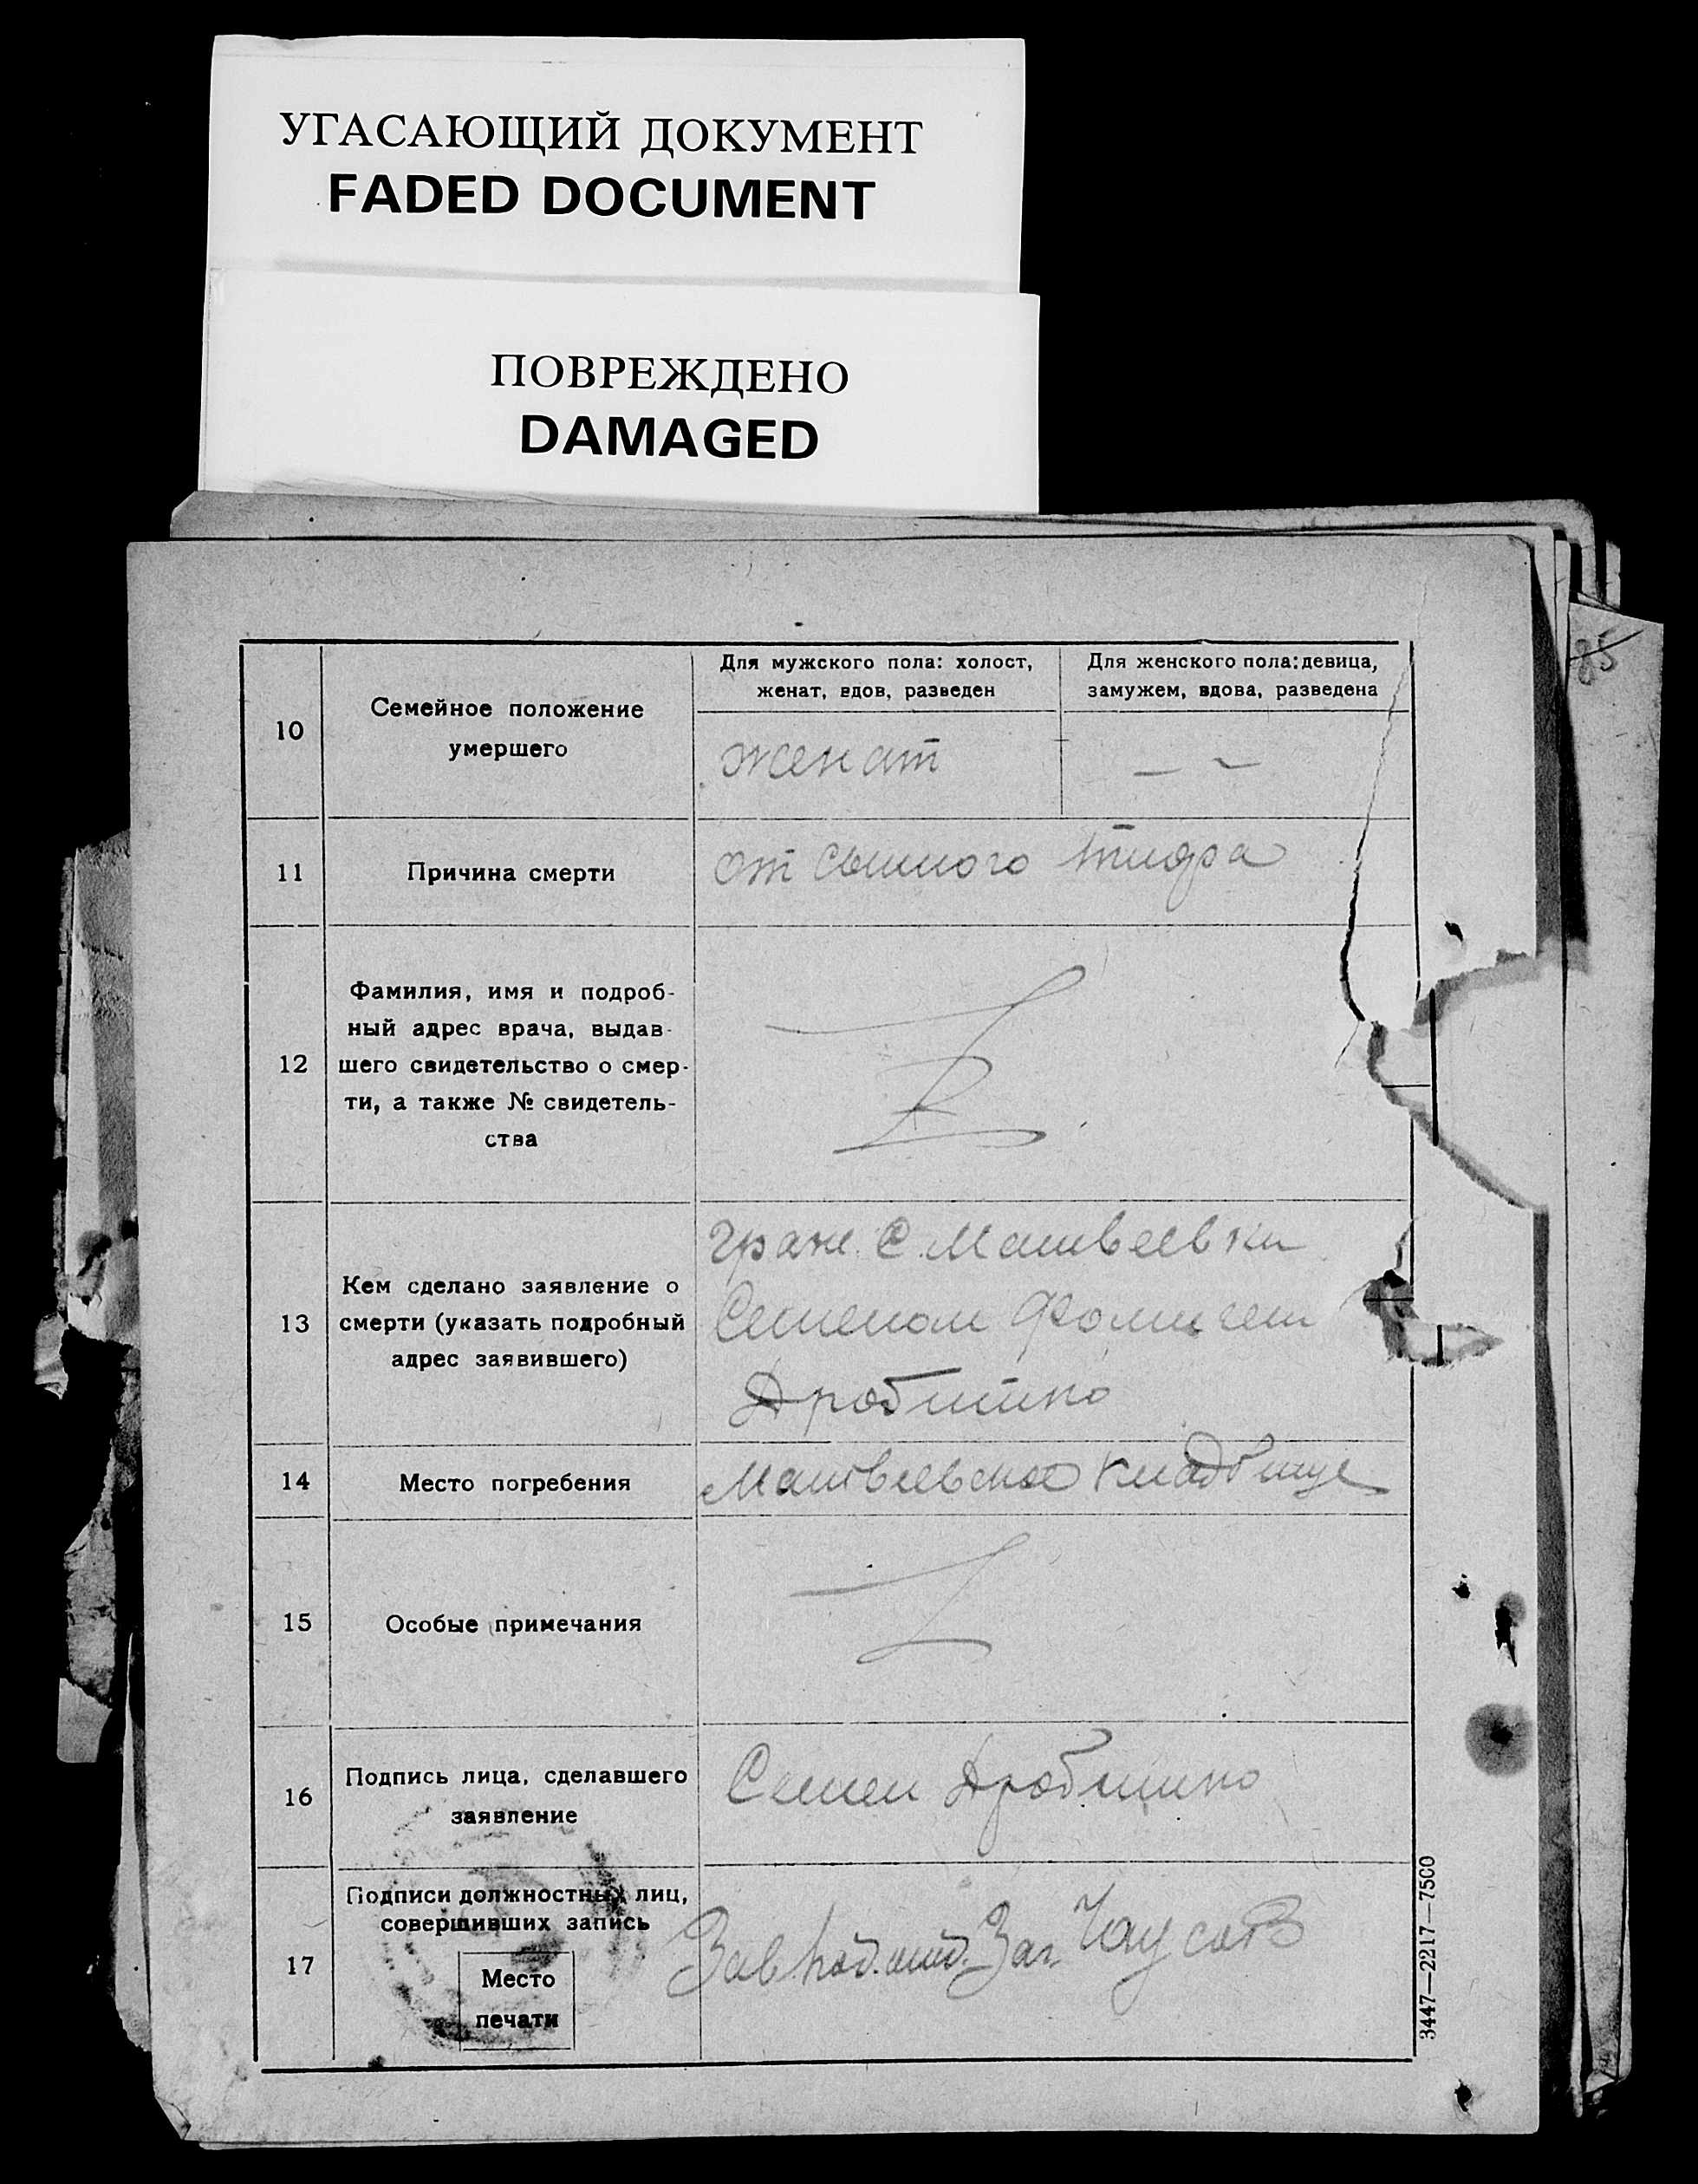 УГАСАЮЩИЙ ДОКУМЕНТ
FADED DOCUMENT
ПОВРЕЖДЕНО
DAMAGED
85
10
Семейное положение
умершего
Для мужского пола: холост,
женат, вдов, разведен
Для женского пола: девица,
замужем, вдова, разведена
женат
— —
11
Причина смерти
от сыпного тифра
12
Фамилия, имя и подроб-
ный адрес врача, выдав-
шего свидетельство о смер-
ти, а также № свидетель-
ства
13
Кем сделано заявление о
смерти (указать подробный
адрес заявившего)
граж. С. Матвеевки
Семеном Фомичем
Дробитко
14
Место погребения
Матвеевское кладбище
15
Особые примечания
16
Подпись лица, сделавшего
заявление
Семен Дробитко
17
Подписи должностных лиц,
совершивших запись
Место
печати
Зав.
3447—2217—7500